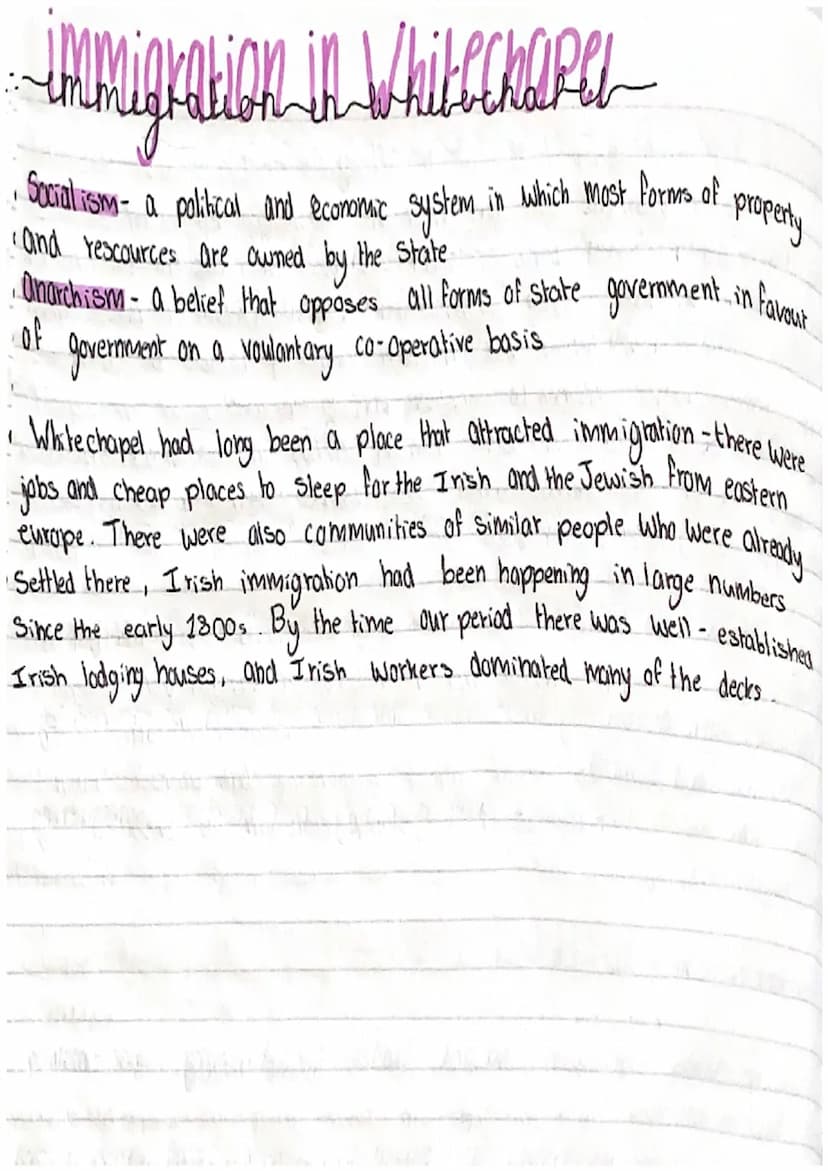 immigration in Whitechapel
immigration in whitechapel
Socialism - a political and economic system in which most forms of property
and rescources are owned by the State
anarchism - a belief that opposes all forms of state government in favour
of government on a voulantary co-operative basis
Whitechapel had long been a place that attracted immigration - there were
jobs and cheap places to sleep for the Irish and the Jewish from eastern
europe. There were also communities of similar people who were already
Settled there, Irish immigration had been happening in large numbers
Since the early 1800s. By the time our period there was well-established
Irish lodging houses, and Irish workers dominated many of the decks.